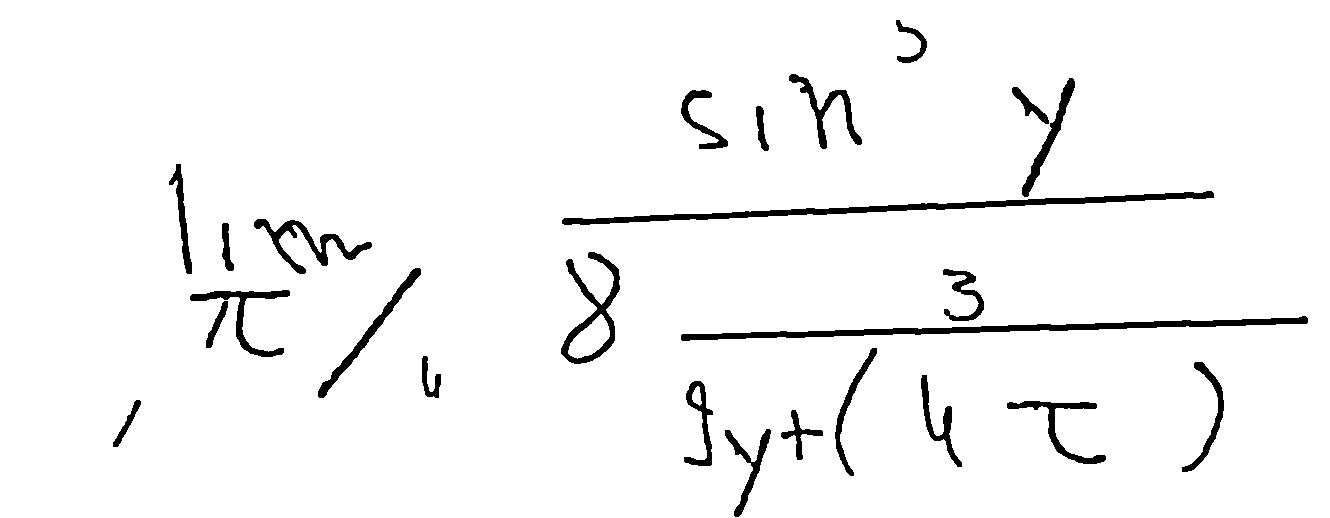 \lim_{\pi/4} \frac{\sin^{} y}{8 \frac{3}{9y+(4\pi)}}